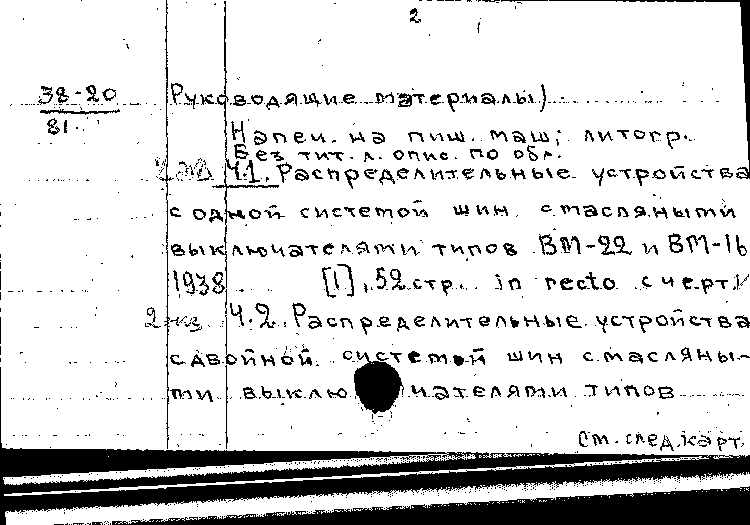 2
38-20 Руководящие материалы)
81. Напеч. на пиш. маш; литогр.
Без тит. л. опис. по обл.
Ч.1. Распределительные устройства
с одной системой шин с масляными
выключателями типов ВМ-22 и ВМ-16
1938 [1], 52 стр. in recto с черт.
2 экз Ч.2. Распределительные устройства
с двойной системой шин с масляны-
ми выключателями типов
См. след. карт.